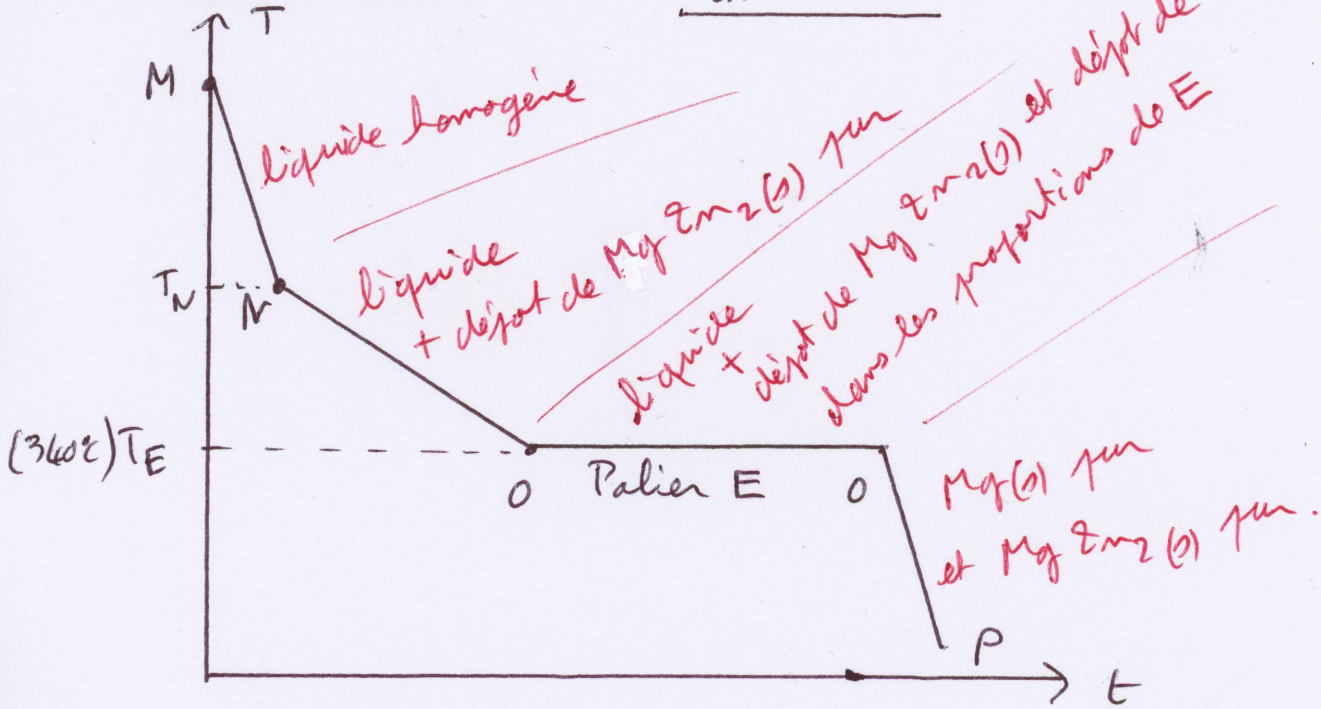 T
M
liquide homogène
liquide
+ dépot de Mg Zn2(s) pur
liquide
+
dépot de Mg Zn2(s) et dépot de
dans les proportions de E
TN
N
(340°C) TE
O Palier E O
Mg(s) pur
et Mg Zn2(s) pur.
P
t